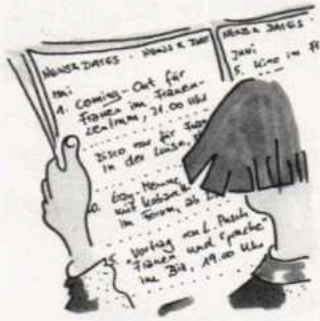 NEWS & DATES · NEWS & DAT
Mai
1. Coming-Out für
Frauen im Frauen-
zentrum, 21.00 Uhr
Disco nur für
in der Luise,
mit
im Forum, ab
25. Vortrag von L. Pusch
"Frauen und Sprache"
im Bia, 19.00 Uhr
NEWS & DATES ·
JUNI
5. Kino im